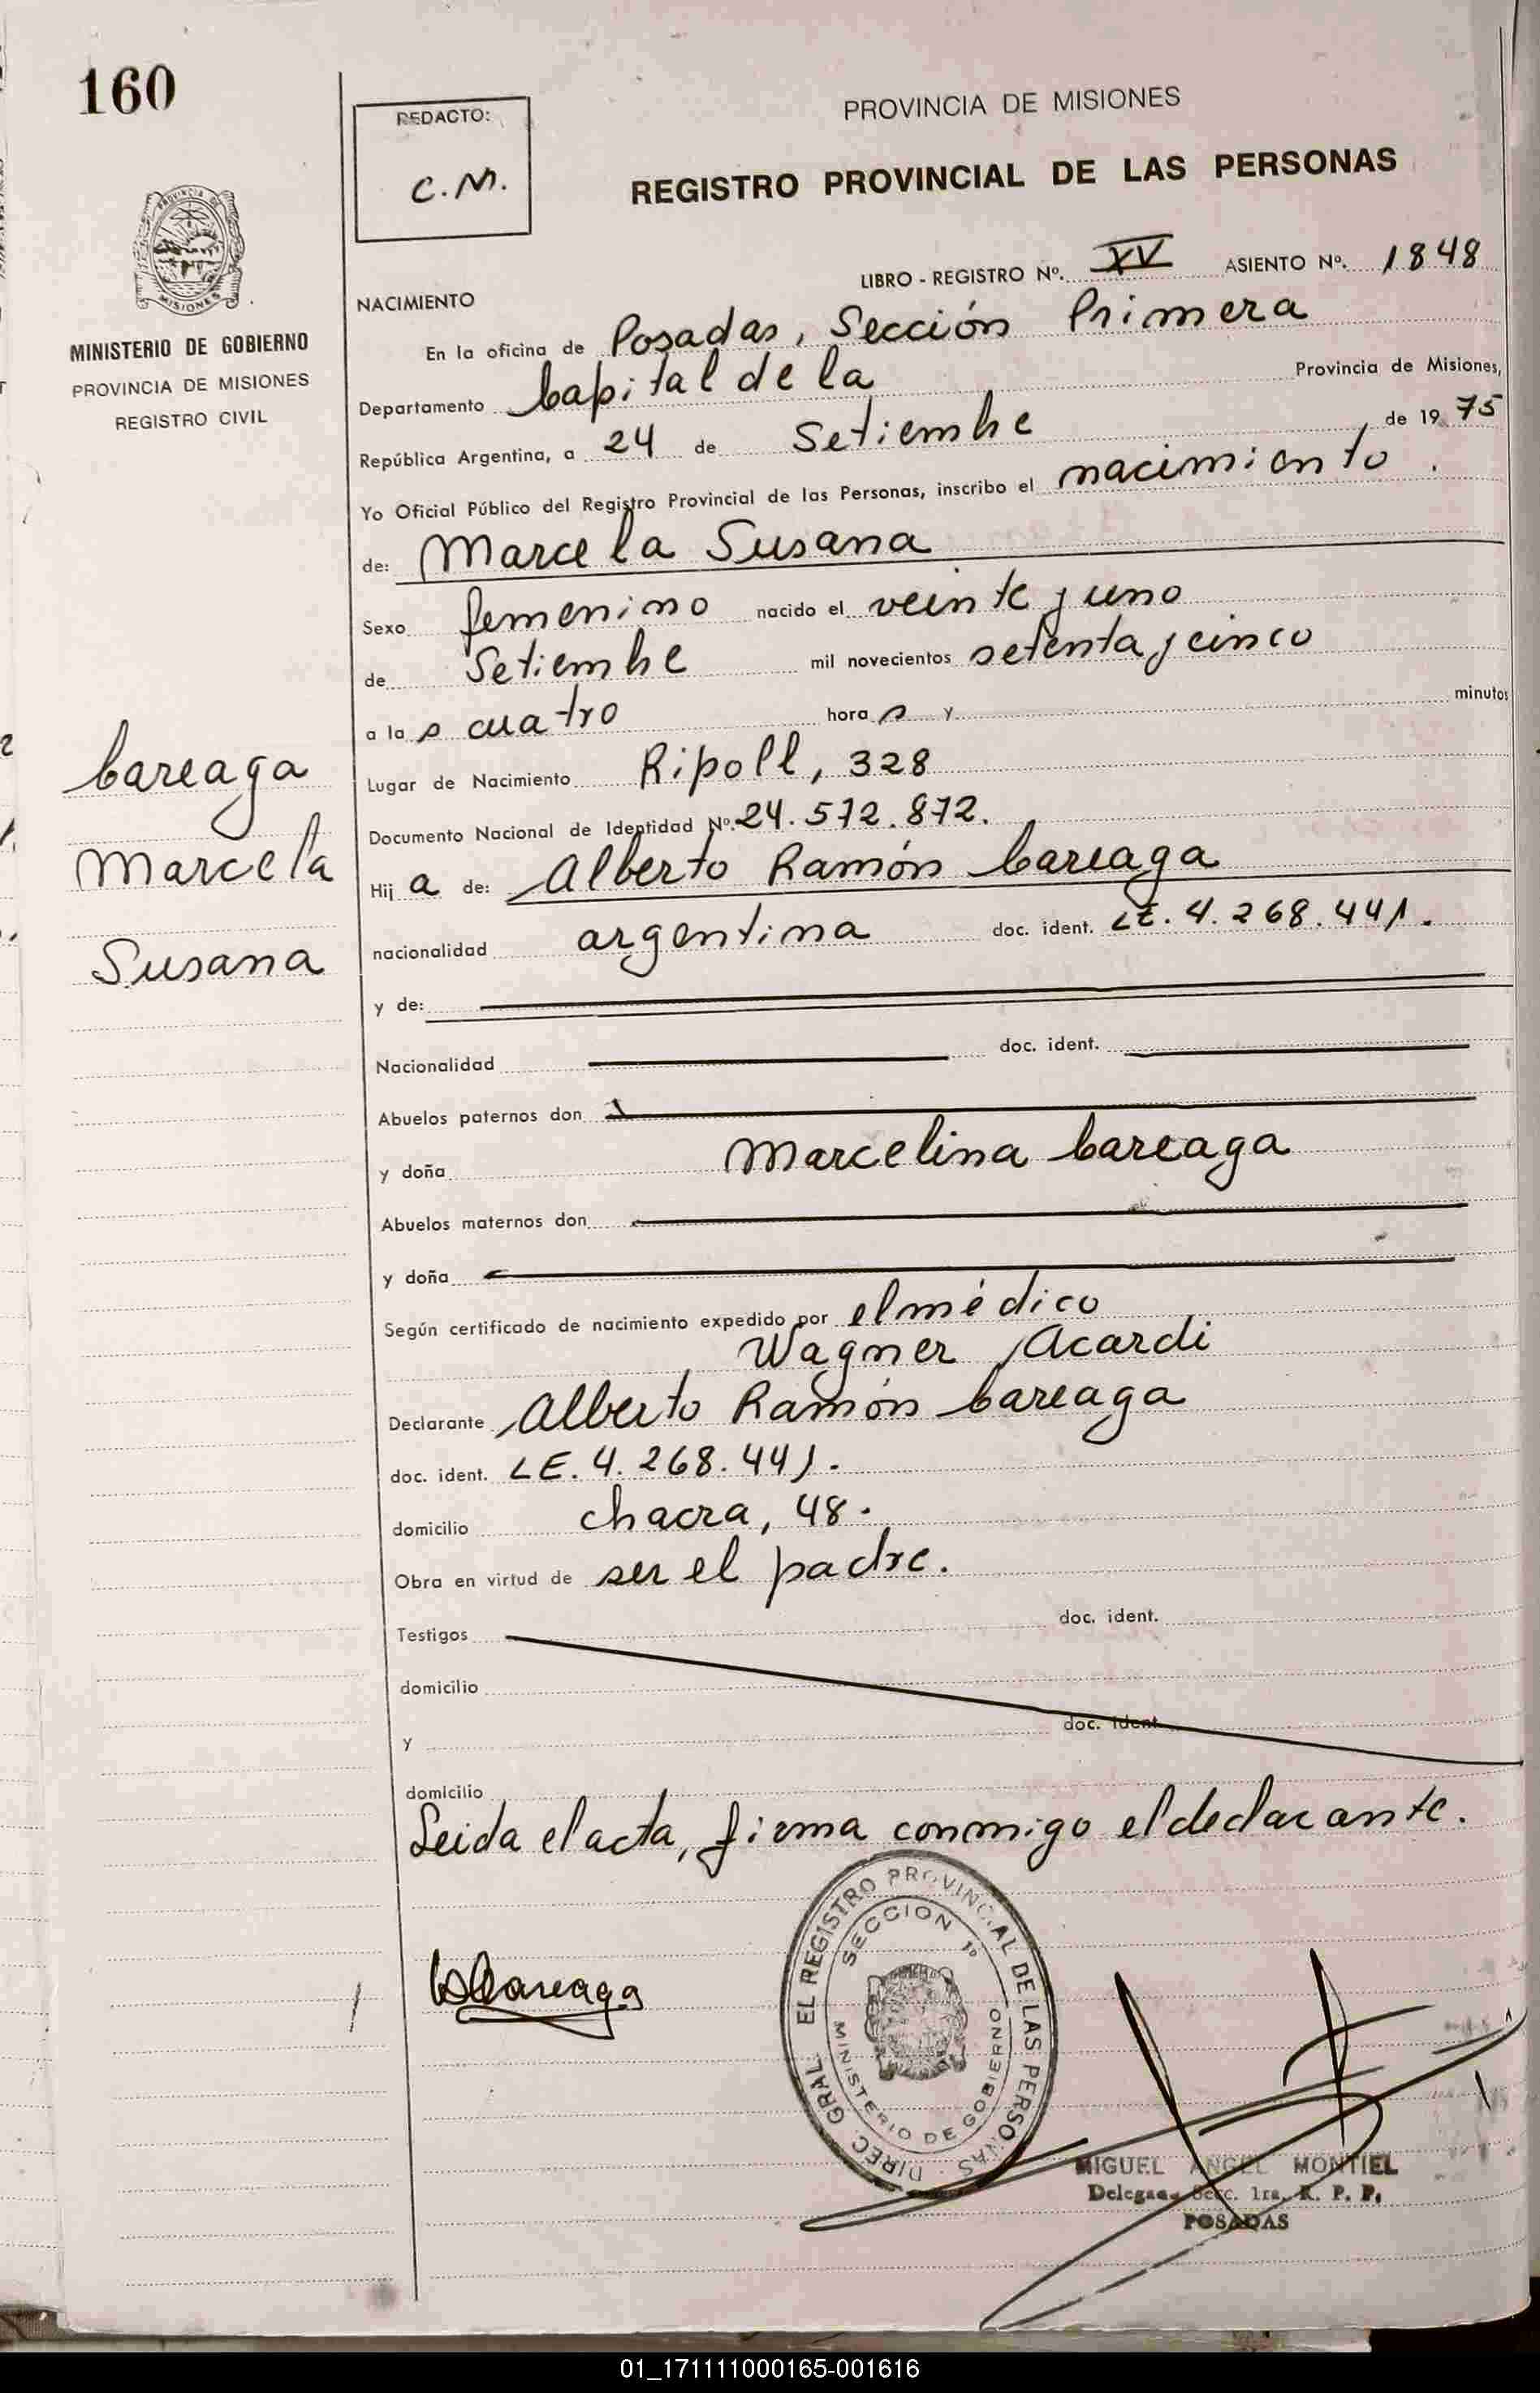 160
REDACTO:
C.M.
PROVINCIA DE MISIONES
REGISTRO PROVINCIAL DE LAS PERSONAS
PROVINCIA DE
MISIONES
MINISTERIO DE GOBIERNO
PROVINCIA DE MISIONES
REGISTRO CIVIL
LIBRO - REGISTRO Nº. XV ASIENTO Nº. 1848
NACIMIENTO
En la oficina de Posadas, Sección Primera
Departamento Capital de la Provincia de Misiones,
República Argentina, a 24 de Setiembre de 1975
Yo Oficial Público del Registro Provincial de las Personas, inscribo el nacimiento.
de: Marcela Susana
Sexo femenino nacido el veinte y uno
de Setiembre mil novecientos setenta y cinco
a las cuatro horas y minutos
Lugar de Nacimiento Ripoll, 328
Documento Nacional de Identidad Nº. 24.572.872.
Careaga
Marcela
Susana
Hija de: Alberto Ramón Careaga
nacionalidad argentina doc. ident. LE. 4.268.441.
y de:
Nacionalidad doc. ident.
Abuelos paternos don
y doña Marcelina Careaga
Abuelos maternos don
y doña
Según certificado de nacimiento expedido por el médico
Wagner Acardi
Declarante Alberto Ramón Careaga
doc. ident. LE. 4.268.441.
domicilio chacra, 48.
Obra en virtud de ser el padre.
Testigos doc. ident.
domicilio
y doc. ident.
domicilio
Leida el acta, firma conmigo el declarante.
Careaga
DIREC. GRAL. EL REGISTRO PROVINCIAL DE LAS PERSONAS
SECCION 1º
MINISTERIO DE GOBIERNO
MIGUEL ANGEL MONTIEL
Secc. 1ra. R. P. P.
POSADAS
01_171111000165-001616